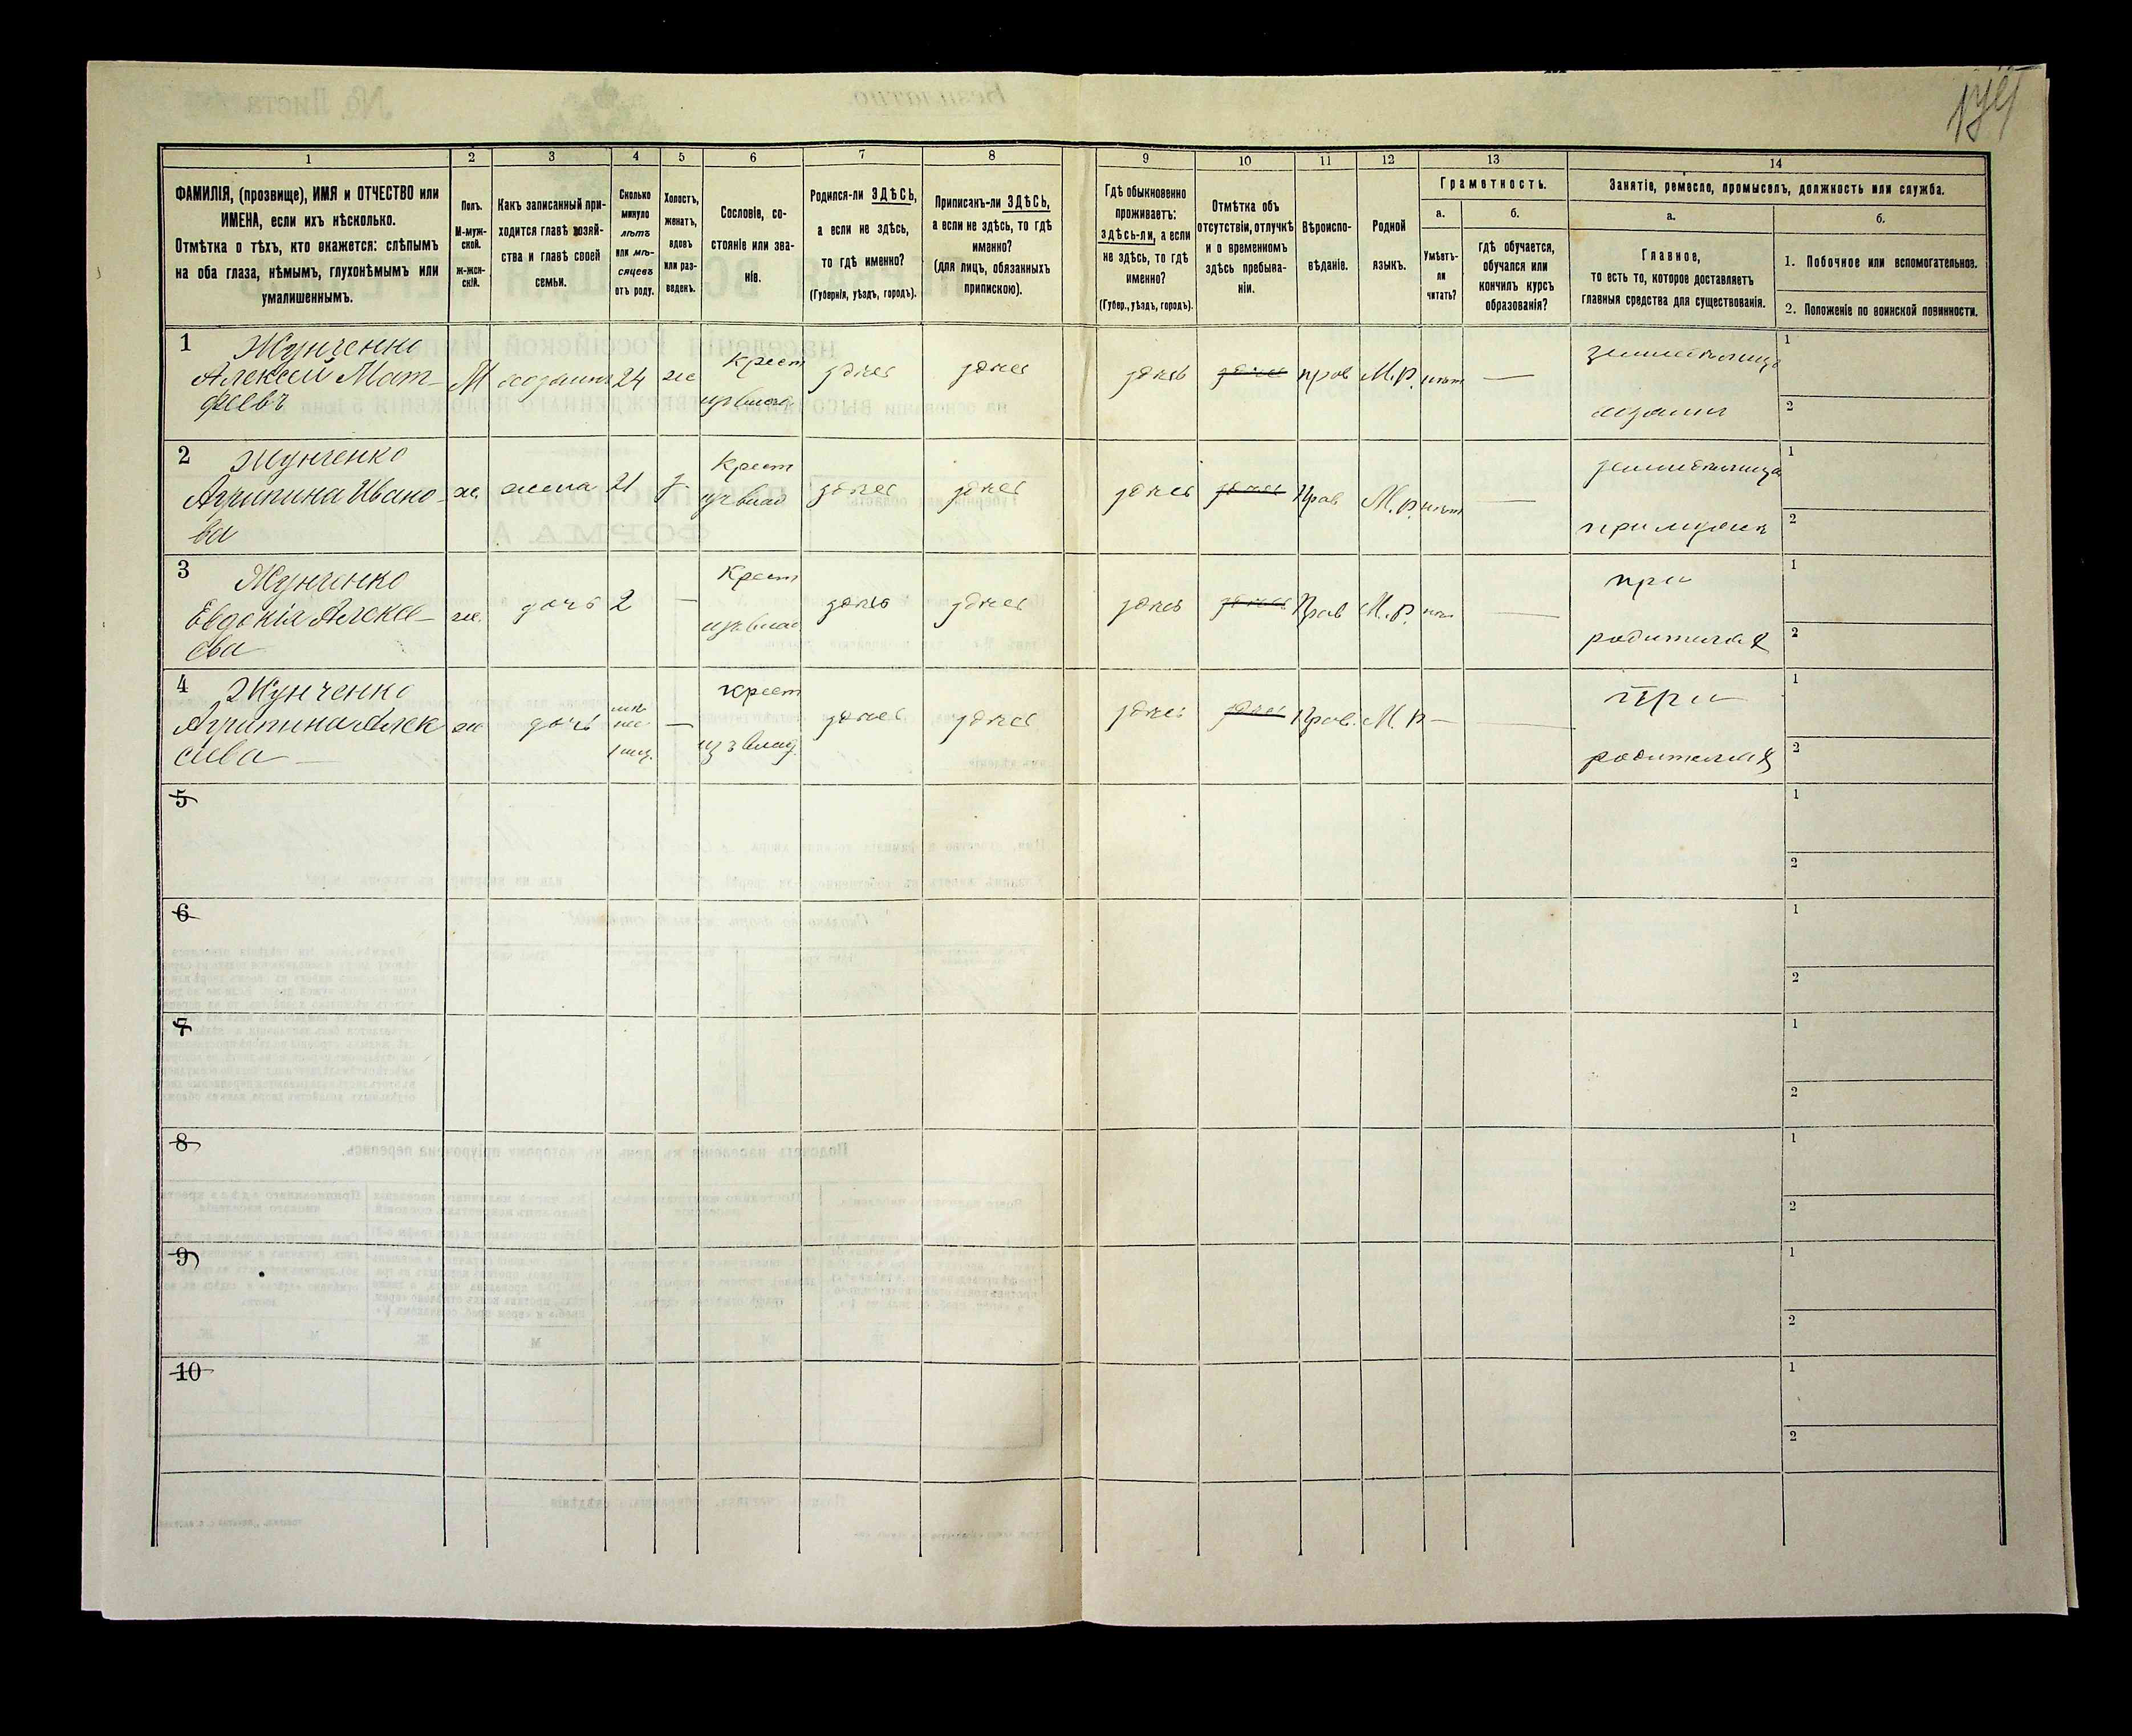 1
2
3
4
5
6
7
8
9
10
11
12
13
14
ФАМИЛІЯ, (прозвище), ИМЯ и ОТЧЕСТВО или
ИМЕНА, если ихъ нѣсколько.
Отмѣтка о тѣхъ, кто окажется: слѣпымъ
на оба глаза, нѣмымъ, глухонѣмымъ или
умалишеннымъ.
Полъ.
М-муж-
ской.
ж-жен-
скій.
Какъ записанный при-
ходится главѣ хозяй-
ства и главѣ своей
семьи.
Сколько
минуло
лѣтъ
или мѣ-
сяцевъ
отъ роду.
Холостъ,
женатъ,
вдовъ
или раз-
веденъ.
Сословіе, со-
стояніе или зва-
ніе.
Родился-ли ЗДѢСЬ,
а если не здѣсь,
то гдѣ именно?
(Губернія, уѣздъ, городъ).
Приписанъ-ли ЗДѢСЬ,
а если не здѣсь, то гдѣ
именно?
(для лицъ, обязанныхъ
припискою).
Гдѣ обыкновенно
проживаетъ:
здѣсь-ли, а если
не здѣсь, то гдѣ
именно?
(Губер., уѣздъ, городъ).
Отмѣтка объ
отсутствіи, отлучкѣ
и о временномъ
здѣсь пребыва-
ніи.
Вѣроиспо-
вѣданіе.
Родной
языкъ.
Грамотность.
а.
б.
Умѣетъ-
ли
читать?
гдѣ обучается,
обучался или
кончилъ курсъ
образованія?
Занятіе, ремесло, промыселъ, должность или служба.
а.
б.
Главное,
то есть то, которое доставляетъ
главныя средства для существованія.
1. Побочное или вспомогательное.
2. Положеніе по воинской повинности.
1 Жунченко
Алексей Мат-
феевъ
М хозяинъ 24 же Крест здесь здесь здесь здесь прав М.р. нѣт —
изъ влад
1
2
2 Жунченко
Агрипина Ивано-
ва
ж. жена 21 з. Крест здесь здесь здесь здесь Прав М.р. нѣт —
изъ влад
при мужѣ
1
2
3 Жунченко
Евдокія Алексе-
ева
ж. дочь 2 — Крест здесь здесь здесь здесь Прав М.р. —
изъ влад
при
родителях
1
2
4 Жунченко
Агрипина Алек
сеева
ж дочь — крест здесь здесь здесь здесь Прав. М.р —
1 мѣс.
изъ влад.
При
родителях
1
2
5
1
2
6
1
2
7
1
2
8
1
2
9
1
2
10
1
2